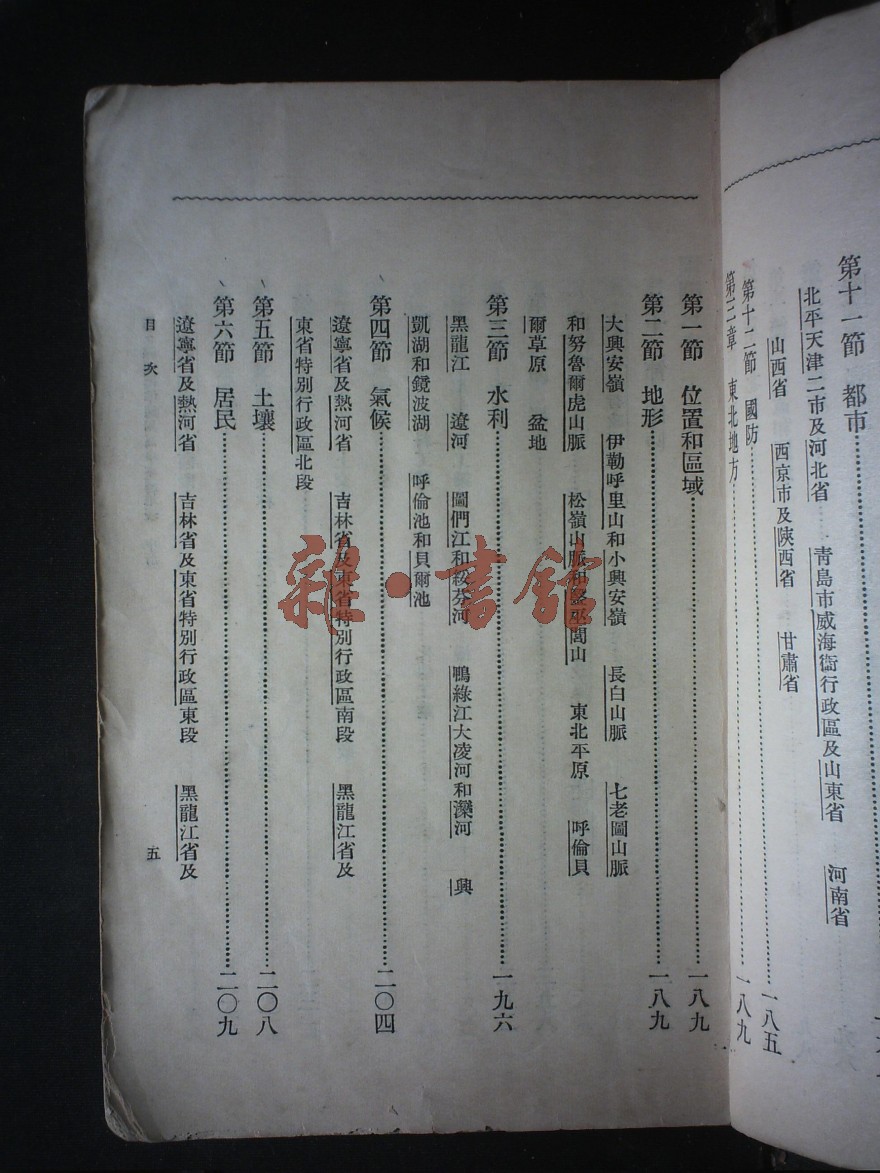 第十一節 都市
北平天津二市及河北省 青島市威海衞行政區及山東省 河南省
山西省 西京市及陝西省 甘肅省
第十二節 國防……一八五
第三章 東北地方……一八九
第一節 位置和區域……一八九
第二節 地形……一八九
大興安嶺 伊勒呼里山和小興安嶺 長白山脈 七老圖山脈
和努魯爾虎山脈 松嶺山脈和醫巫閭山 東北平原 呼倫貝
爾草原 盆地
第三節 水利……一九六
黑龍江 遼河 圖們江和綏芬河 鴨綠江大凌河和灤河 興
凱湖和鏡波湖 呼倫池和貝爾池
第四節 氣候……二〇四
遼寧省及熱河省 吉林省及東省特別行政區南段 黑龍江省及
東省特別行政區北段
第五節 土壤……二〇八
第六節 居民……二〇九
遼寧省及熱河省 吉林省及東省特別行政區東段 黑龍江省及
目次 五
雜·書館